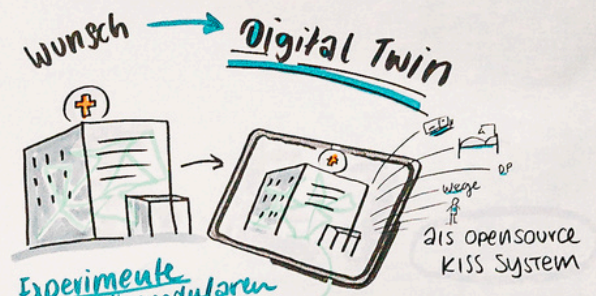 Wunsch → Digital Twin
OP
Wege
als opensource
KISS System
Experimente